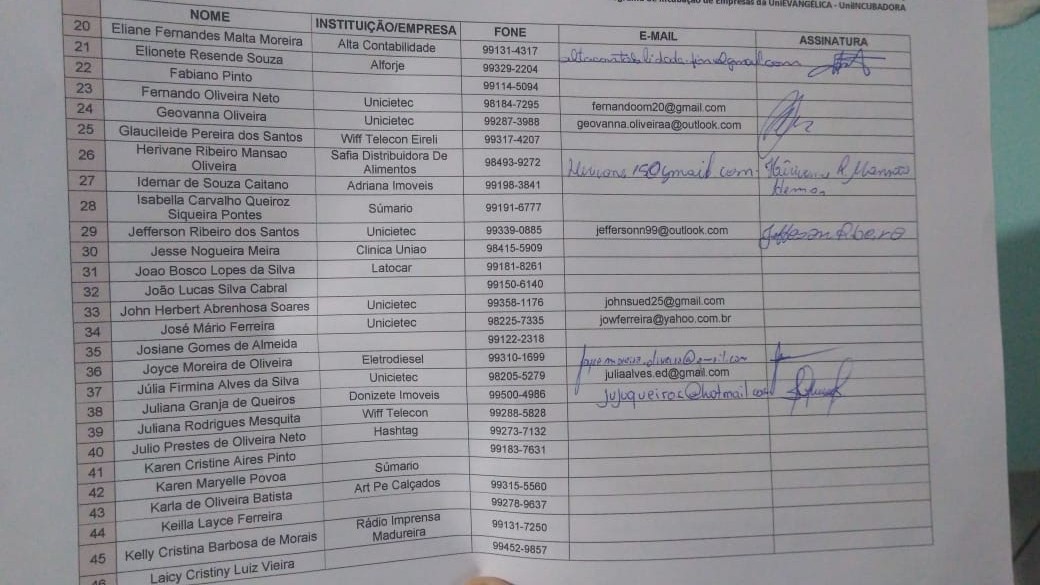 de Empresas da UniEVANGÉLICA - UniINCUBADORA
NOME INSTITUIÇÃO/EMPRESA FONE E-MAIL ASSINATURA
20 Eliane Fernandes Malta Moreira Alta Contabilidade 99131-4317
21 Elionete Resende Souza Alforje 99329-2204
22 Fabiano Pinto 99114-5094
23 Fernando Oliveira Neto Unicietec 98184-7295 fernandoom20@gmail.com
24 Geovanna Oliveira Unicietec 99287-3988 geovanna.oliveiraa@outlook.com
25 Glaucileide Pereira dos Santos Wiff Telecon Eireli 99317-4207
26 Herivane Ribeiro Mansao Oliveira Safia Distribuidora De Alimentos 98493-9272
27 Idemar de Souza Caitano Adriana Imoveis 99198-3841
28 Isabella Carvalho Queiroz Siqueira Pontes Súmario 99191-6777
29 Jefferson Ribeiro dos Santos Unicietec 99339-0885 jeffersonn99@outlook.com
30 Jesse Nogueira Meira Clinica Uniao 98415-5909
31 Joao Bosco Lopes da Silva Latocar 99181-8261
32 João Lucas Silva Cabral 99150-6140
33 John Herbert Abrenhosa Soares Unicietec 99358-1176 johnsued25@gmail.com
34 José Mário Ferreira Unicietec 98225-7335 jowferreira@yahoo.com.br
35 Josiane Gomes de Almeida 99122-2318
36 Joyce Moreira de Oliveira Eletrodiesel 99310-1699
37 Júlia Firmina Alves da Silva Unicietec 98205-5279 juliaalves.ed@gmail.com
38 Juliana Granja de Queiros Donizete Imoveis 99500-4986 jujuqueiros@hotmail.com
39 Juliana Rodrigues Mesquita Wiff Telecon 99288-5828
40 Julio Prestes de Oliveira Neto Hashtag 99273-7132
41 Karen Cristine Aires Pinto 99183-7631
42 Karen Maryelle Povoa Súmario
43 Karla de Oliveira Batista Art Pe Calçados 99315-5560
44 Keilla Layce Ferreira 99278-9637
45 Kelly Cristina Barbosa de Morais Rádio Imprensa Madureira 99131-7250
46 Laicy Cristiny Luiz Vieira 99452-9857